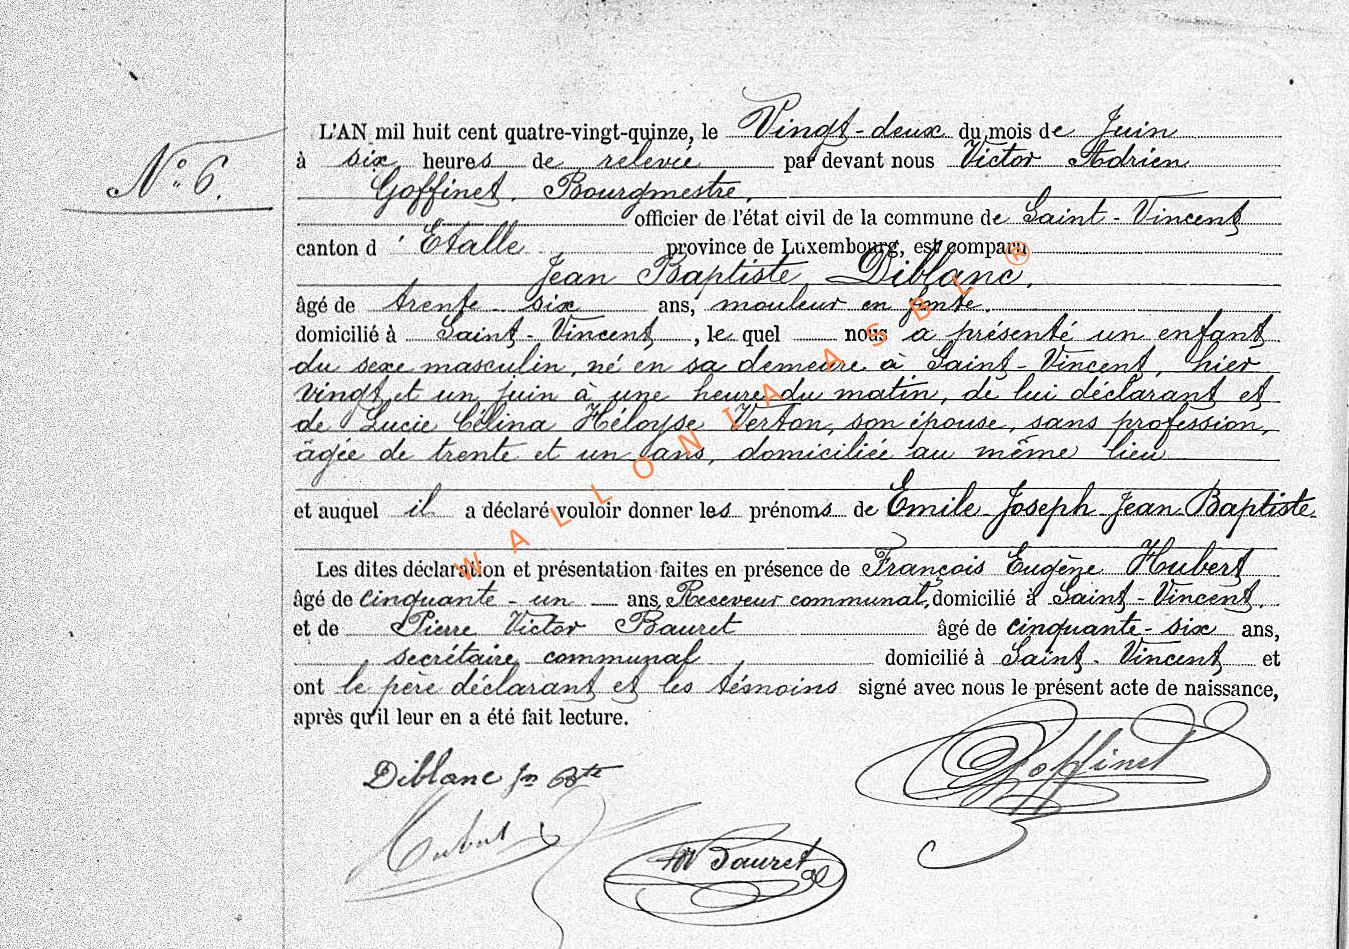 L'AN mil huit cent quatre-vingt-quinze, le Vingt-deux du mois de Juin
N° 6.
à six heures de relevée par devant nous Victor Adrien
Goffinet. Bourgmestre.
officier de l'état civil de la commune de Saint-Vincent
canton d'Etalle province de Luxembourg, est comparu
Jean Baptiste Diblanc.
âgé de trente-six ans, mouleur en fonte.
domicilié à Saint-Vincent, le quel nous a présenté un enfant
du sexe masculin, né en sa demeure à Saint-Vincent, hier
vingt et un juin à une heure du matin, de lui déclarant et
de Lucie Célina Héloyse Verton, son épouse, sans profession,
âgée de trente et un ans, domiciliée au même lieu
et auquel il a déclaré vouloir donner les prénoms de Emile Joseph Jean Baptiste.
Les dites déclaration et présentation faites en présence de François Eugène Hubert
âgé de cinquante-un ans, Receveur communal, domicilié à Saint-Vincent.
et de Pierre Victor Bauret âgé de cinquante-six ans,
secrétaire communal domicilié à Saint-Vincent et
ont le père déclarant et les témoins signé avec nous le présent acte de naissance,
après qu'il leur en a été fait lecture.
Diblanc Jn Bte
Goffinet
Hubert
Bauret
WALLONIA ASBL ®